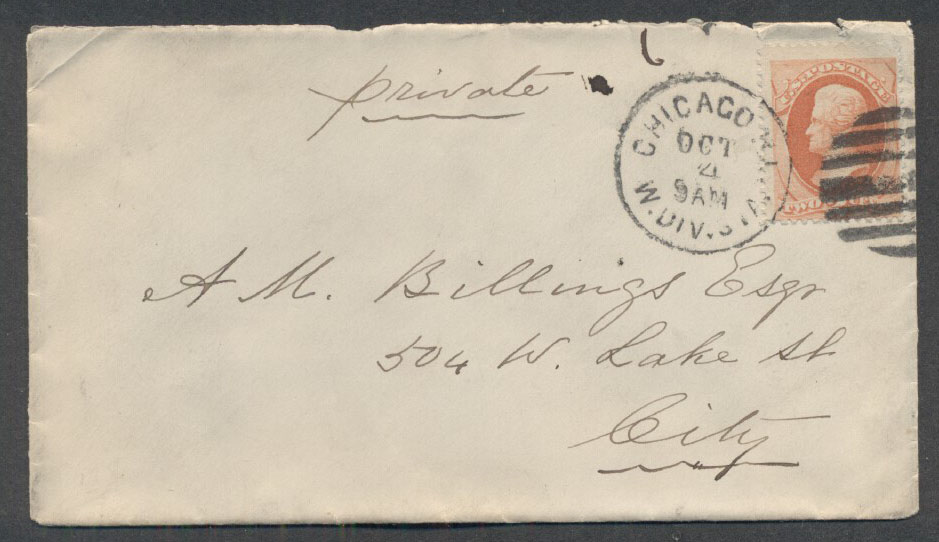 private
U.S. POSTAGE
CHICAGO ILL
OCT
21
9AM
W.DIV.STA.
A M. Billings Esqr
504 W. Lake St
City